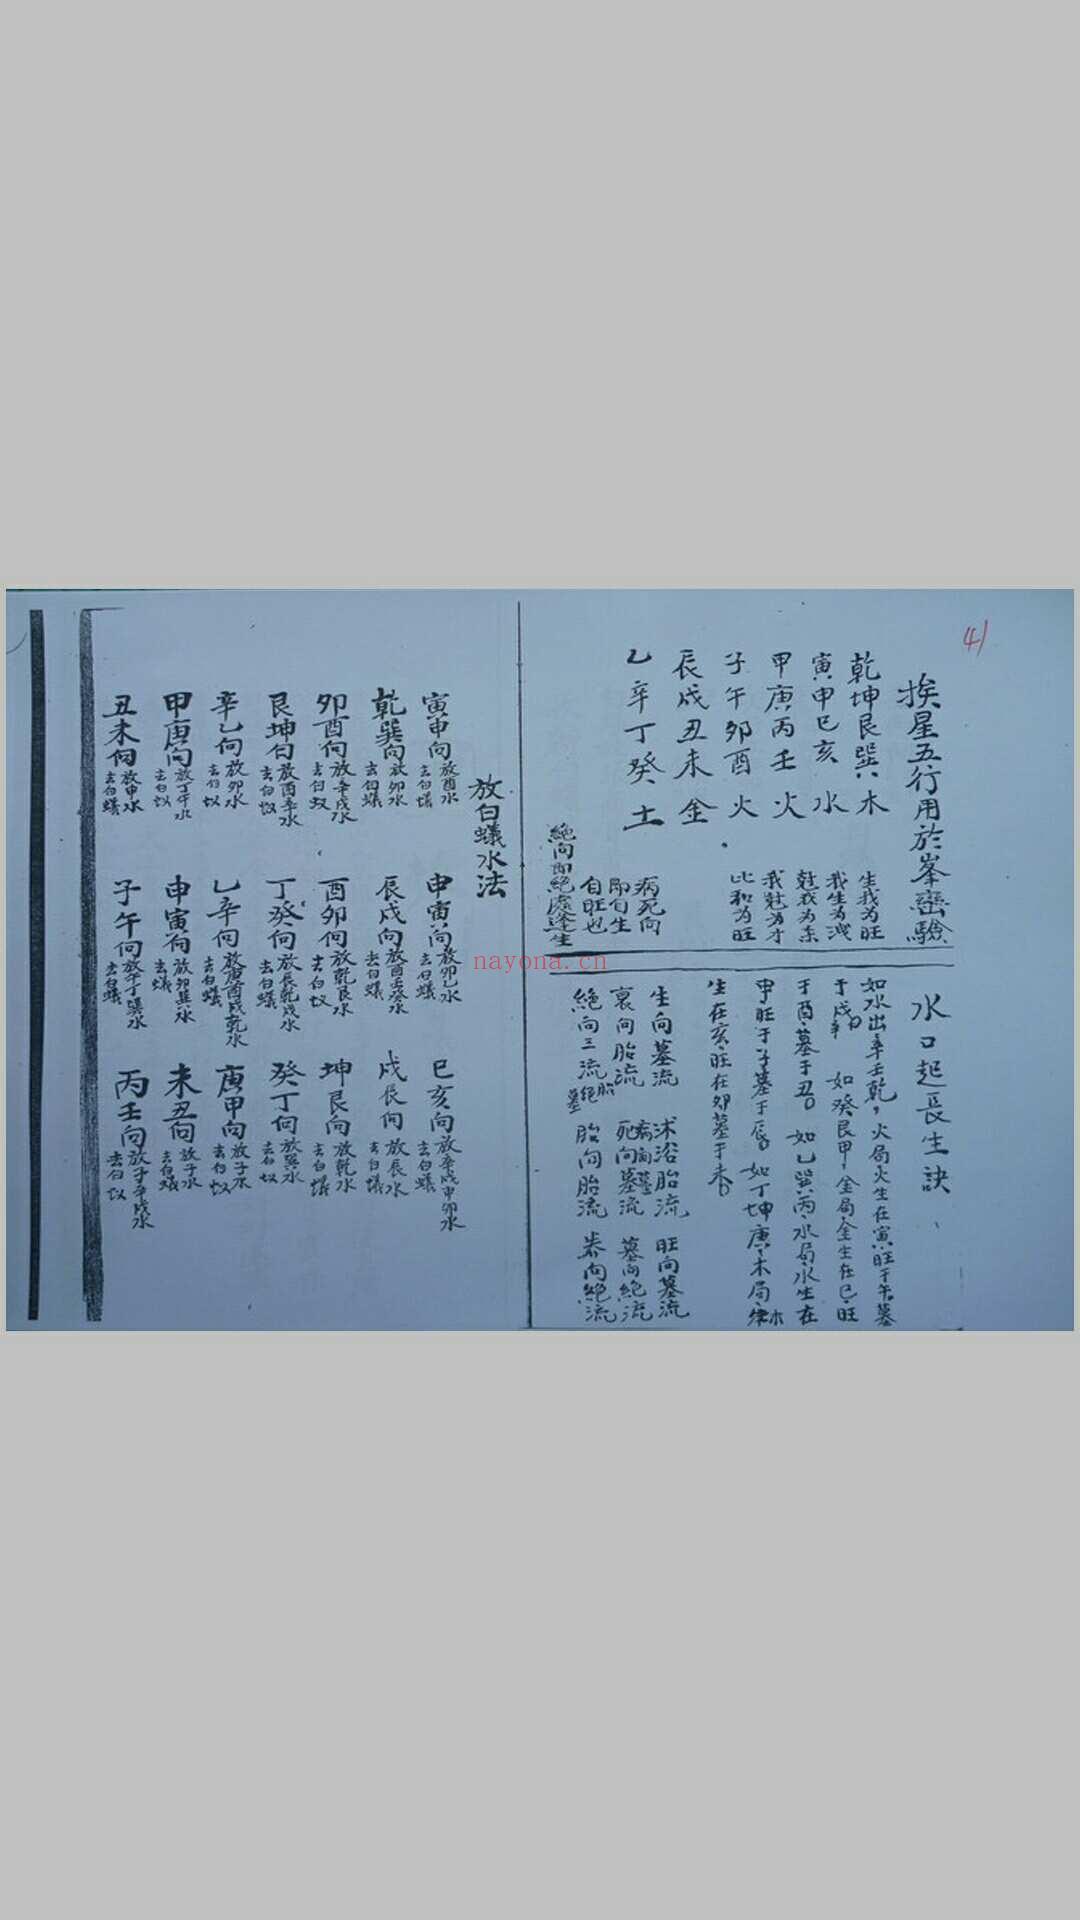 41
挨星五行用於峯巒驗
乾坤艮巽木
寅申巳亥水
甲庚丙壬火
子午卯酉火
辰戌丑未金
乙辛丁癸土
生我为旺
我生为洩
尅我为杀
我尅为才
比和为旺
病死向
即自生
自旺也
絶向即絶處逢生
水口起長生訣
如水出辛壬乾，火局火生在寅旺于午墓
于戌 如癸艮甲金局金生在巳旺
于酉墓于丑 如乙巽丙水局水生在
申旺于子墓于辰 如丁坤庚木局木
生在亥旺在卯墓于未
生向墓流 沐浴胎流 旺向墓流
衰向胎流 病向墓 死向墓流 墓向絶流
絶向三流 胎絶墓 胎向胎流 养向絶流
放白蟻水法
寅申向放酉水去白蟻 申寅向放卯巳水去白蟻 巳亥向放辛戌申卯水去白蟻
乾巽向放卯水去白蟻 辰戌向放酉壬癸水去白蟻 戌辰向放辰水去白蟻
卯酉向放辛戌水去白蚁 酉卯向放乾艮水去白蚁 坤艮向放乾水去白蟻
艮坤向放酉辛水去白蚁 丁癸向放辰乾戌水去白蟻 癸丁向放巽水去白蚁
辛乙向放卯水去白蚁 乙辛向放庚酉戌乾水去白蟻 庚甲向放子水去白蚁
甲庚向放丁午水去白蚁 申寅向放卯巽水去蟻 未丑向放子水去白蟻
丑未向放申水去白蟻 子午向放辛丁巽水去白蟻 丙壬向放子辛戌水去白蚁
nayona.cn